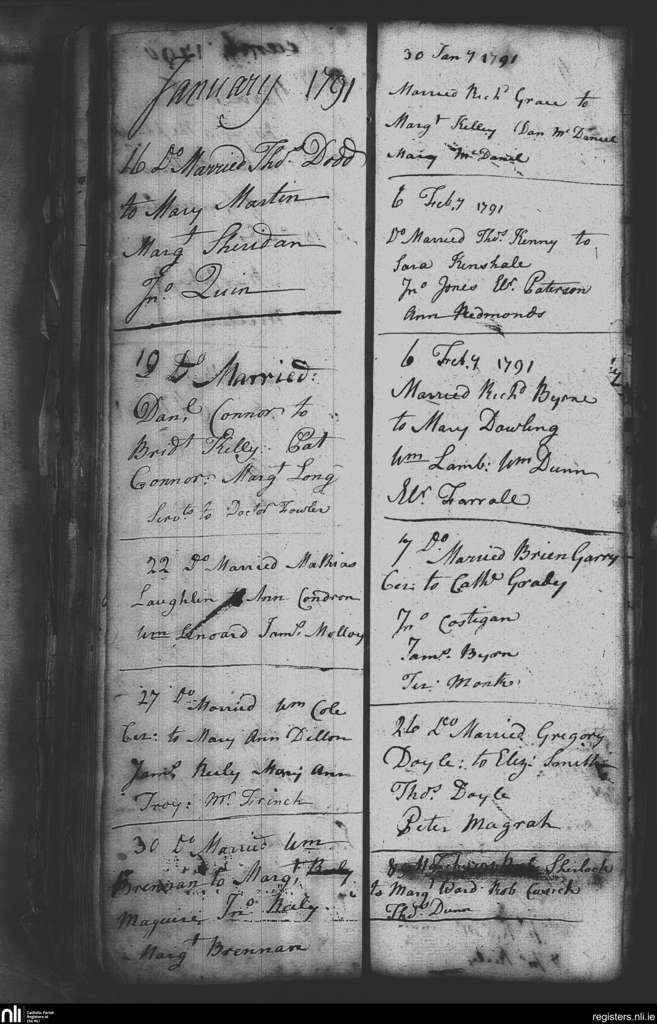 January 1791
16 Do Married Thos. Dodd
to Mary Martin
Margt Sheridan
Jno. Quin
19 Do Married:
Danl Connor to
Bridt Kelly: Pat
Connor: Margt Long
Servts to Doctor Fowler
22 Do Married Mathias
Laughlin to Ann Condron
Wm Lenoard Jams. Molloy
27 Do Married Wm Cole
Cer: to Mary Ann Dillon
Jams Reely Mary Ann
Troy: Mr. Frinch
30 Do Married Wm
Brennan to Margt
Maguire Jno Realy
Margt Brennan
30 Jany 1791
Married Richd Grace to
Margt Kelley Dan McDaniel
Marg McDanel
6 Feb.y 1791
Do Married Thos. Kenny to
Sara Kenshale
Jno Jones Elr. Paterson
Ann Redmonds
6 Feb.y 1791
Married Richd Byrne
to Mary Dowling
Wm Lamb: Wm Dunn
Elr Farrale
7 Do Married Brien Garry
Cer: to Cathe Grady
Jno Costigan
Jams. Byrn
Ter: Monks
26 Do Married Gregory
Doyle: to Eliz: Smith
Thos. Doyle
Peter Magrah
Sherlock
to Margt Ward Rob
Thos Dunn
nli
Catholic Parish
Registers at
the NLI
registers.nli.ie